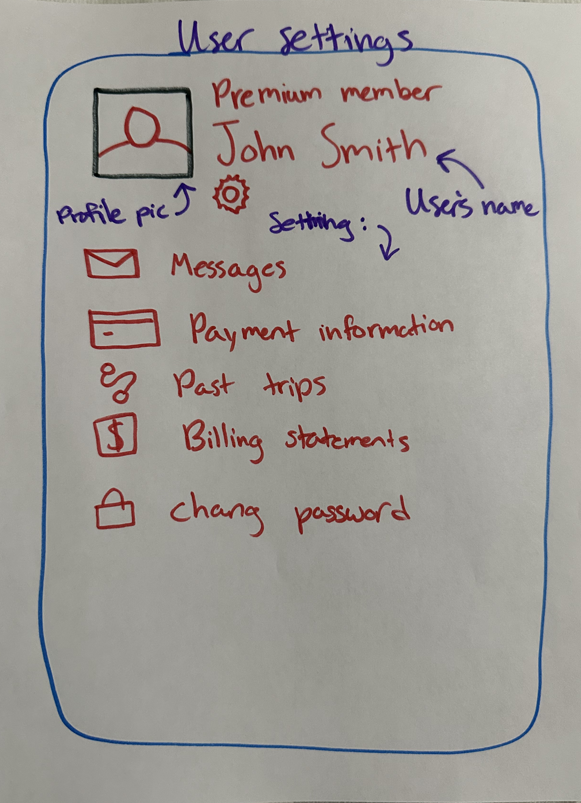 User settings
Premium member
John Smith
Profile pic
User's name
Setting:
Messages
Payment information
Past trips
$
Billing statements
chang password